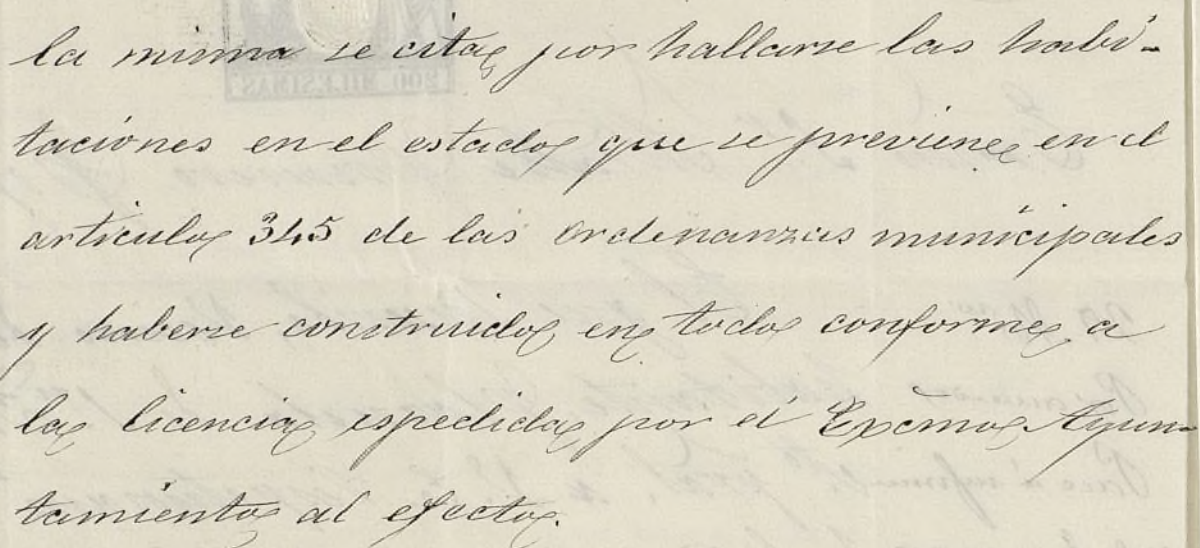 la misma se cita, por hallarse las habi-
taciones en el estado que se previene en el
articulo 345 de las ordenanzas municipales
y haberse construido en todo conforme a
la licencia espedida por el Excmo Ayun-
tamiento al efecto.